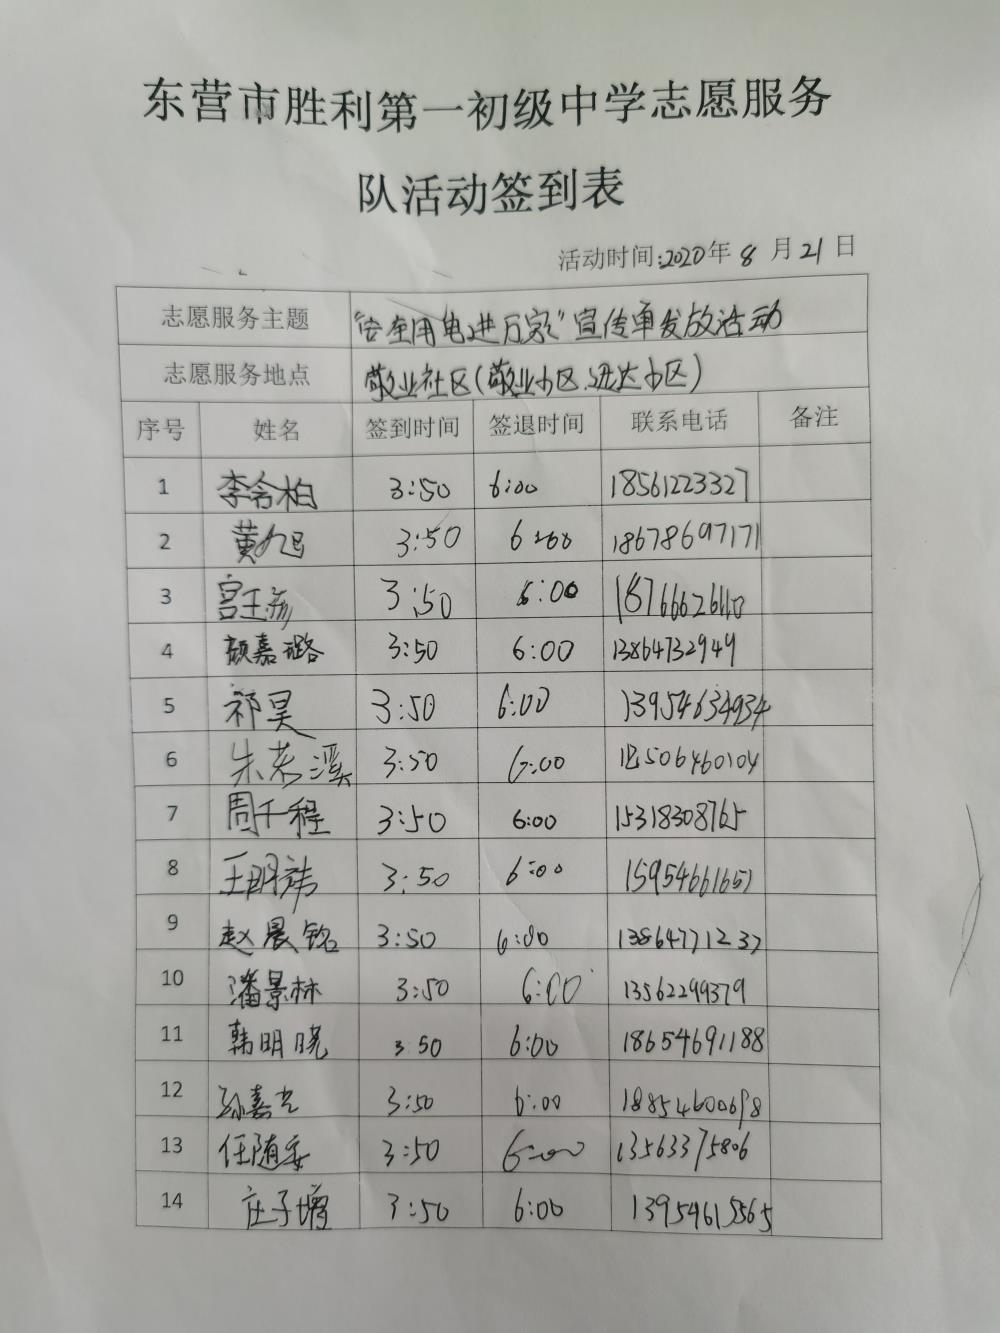 东营市胜利第一初级中学志愿服务
队活动签到表
活动时间:2020年 8 月 21 日
志愿服务主题 “安全用电进万家”宣传单发放活动
志愿服务地点 敬业社区(敬业小区、进达小区)
序号 姓名 签到时间 签退时间 联系电话 备注
1 李含柏 3:50 6:00 18561223327
2 黄旭 3:50 6:00 18678697171
3 宫王 3:50 6:00
4 颜嘉璐 3:50 6:00 13864732949
5 祁昊 3:50 6:00 13954634934
6 朱若溪 3:50 6:00
7 周千程 3:50 6:00 15318308765
8 王明祎 3:50 6:00 15954661651
9 赵晨铭 3:50 6:00 13864771237
10 潘景林 3:50 6:00 13562299379
11 韩明晓 3:50 6:00 18654691188
12 孙嘉艺 3:50 6:00 18854600698
13 任随安 3:50 6:00 13563375806
14 庄子增 3:50 6:00 13954615565